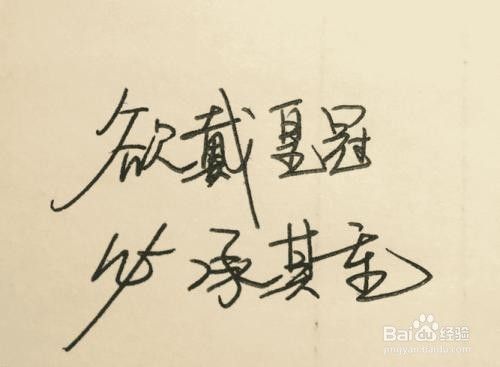 欲戴皇冠
必承其重
Baidu 经验
jingyan.baidu.com